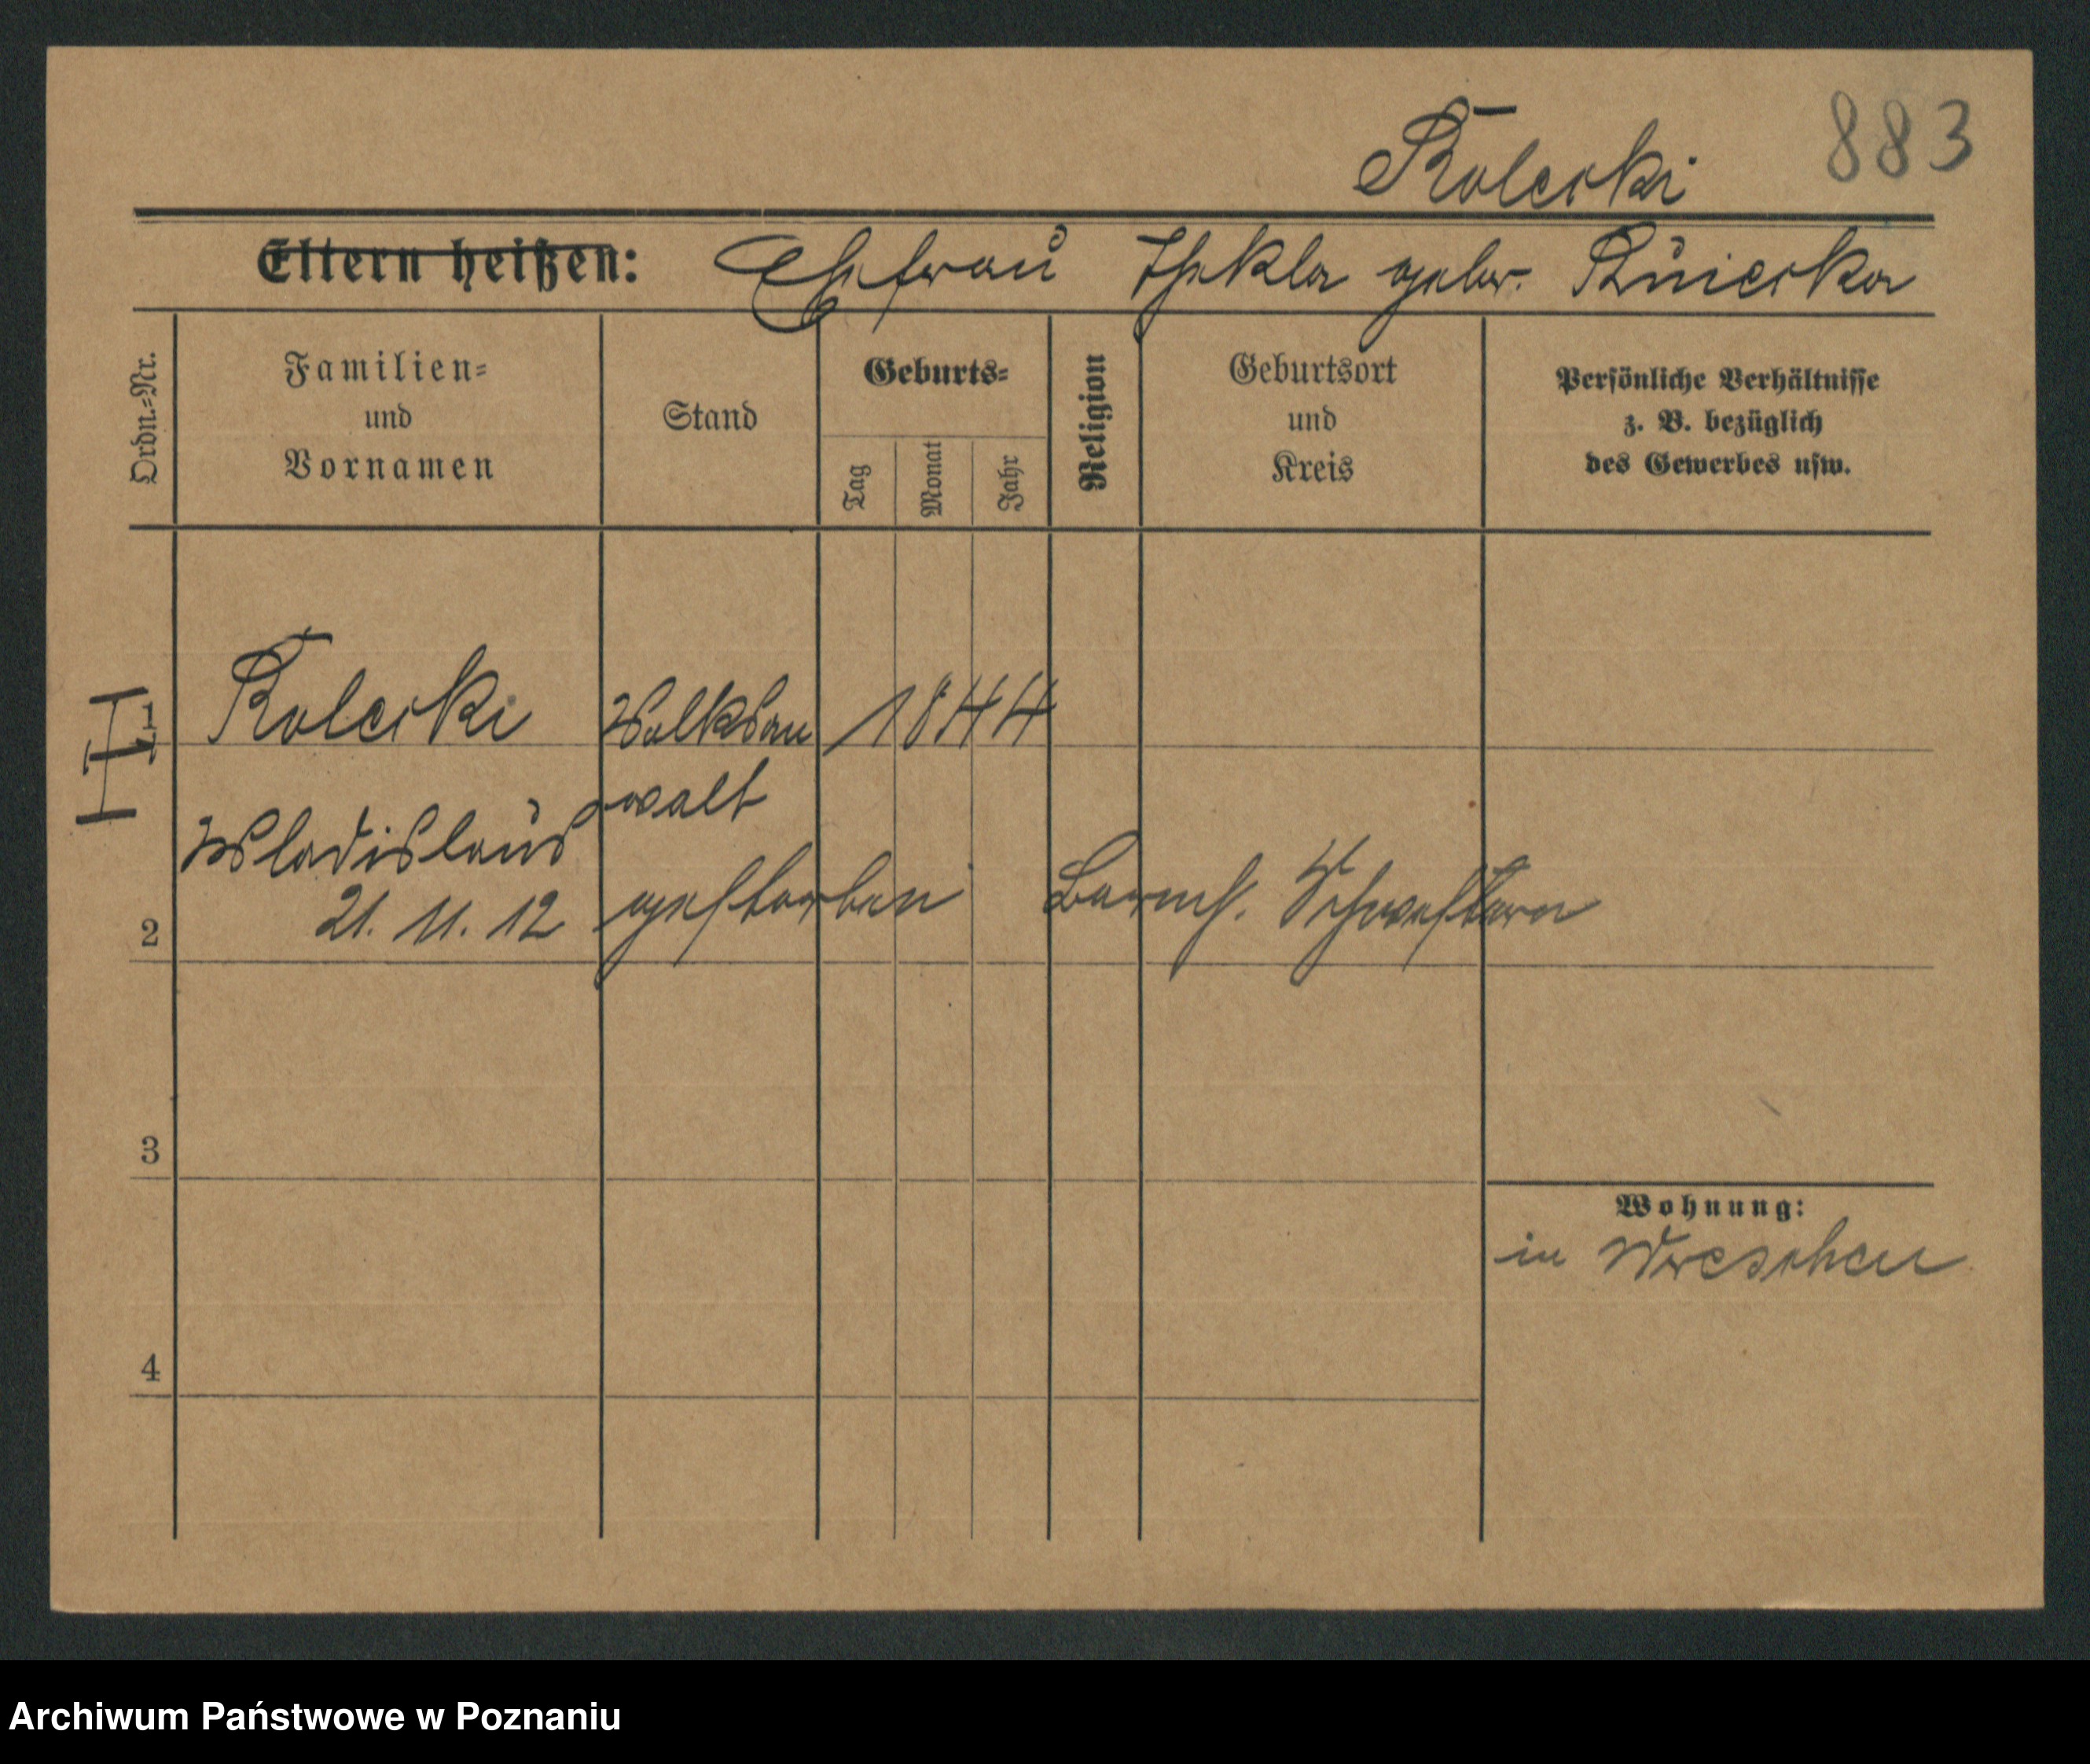 883
Rolecki
Eltern heißen: Ehefrau Thekla gebor.
Ordn.=Nr.
Familien=
und
Vornamen
Stand
Geburts=
Tag
Monat
Jahr
Religion
Geburtsort
und
Kreis
Persönliche Verhältnisse
z. B. bezüglich
des Gewerbes usw.
1 Rolecki Volksan 1844
walt
Wladislaus
2 21. 11. 12 gestorben Barmh. Schwestern
3
Wohnung:
in Wreschen
4
Archiwum Państwowe w Poznaniu